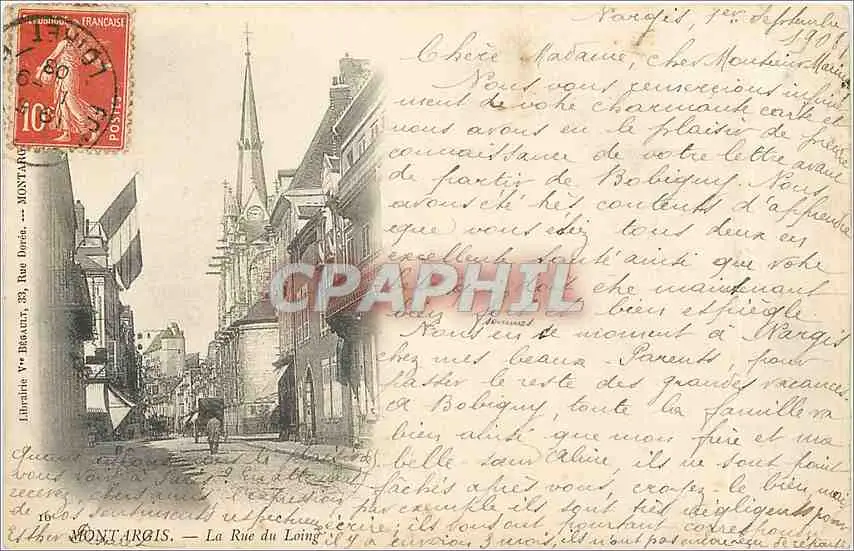 RÉPUBLIQUE FRANÇAISE
10c
POSTES
LOIRET
Librairie Vve BÉGAULT, 33, Rue Dorée. — MONTARG
Nargis, 1er Septembre
190
Chère Madame, cher Monsieur
Nous vous remercions infini
ment de votre charmante carte et
nous avons eu le plaisir de
connaissance de votre lettre avant
de partir de Bobigny. Nous
avons été très contents d'apprendre
que vous étiez tous deux en
excellente santé ainsi que votre
être maintenant
bien espiègle
Nous sommes en ce moment à Nargis
chez mes beaux-Parents, pour
passer le reste des grandes vacances.
A Bobigny, toute la famille va
bien ainsi que mon frère et ma
belle-sœur Céline, ils ne sont point
fâchés après vous, croyez le bien, mais
par exemple ils sont très négligents pour
écrire; ils vous ont pourtant
il y a environ 3 mois, ils n'ont pas
Quand aurons nous le plaisir de
vous voir à Paris? En attendant
recevez, chers amis, l'expression
de nos sentiments respectueux
Esther
16
MONTARGIS. — La Rue du Loing
CPAPHIL.com